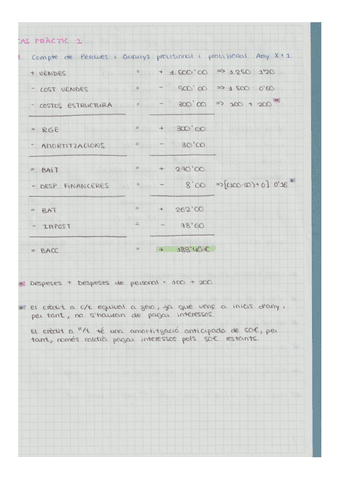 CAS PRÀCTIC 1
1. Compte de Pèrdues i Guanys provisional i previsional. Any X+1
+ VENDES = + 1.500'00 ⇒ 1.250 1'20
- COST VENDES = - 500'00 ⇒ 1.500
- COSTOS ESTRUCTURA = - 300'00 ⇒ 100 + 200*
= RGE = +
- AMORTITZACIONS = - 30'00
= BAIT +
- DESP. FINANCERES = - 8'00
= BAT = + 262'00
- IMPOST = -
= BACC = +
* Despeses + Despeses de personal = 100 + 200
* El crèdit a c/t equival a zero, ja que venç a inicis d'any,
per tant, no s'hauran de pagar interessos.
El crèdit a ll/t té una amortització anticipada de 50€, per
tant, només caldrà pagar interessos pels 50€ restants.